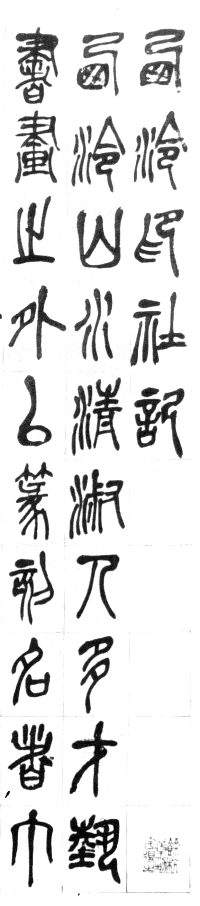 西泠印社記
西泠山水清淑人多才藝
書畫之外以篆刻名者丁